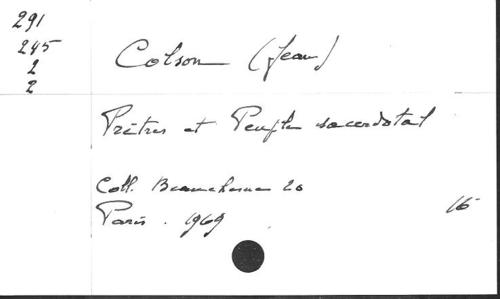 291
245
2
2
Colson (Jean)
Prêtres et Peuple sacerdotal
Coll. Beauchesne 20
Paris. 1969
16